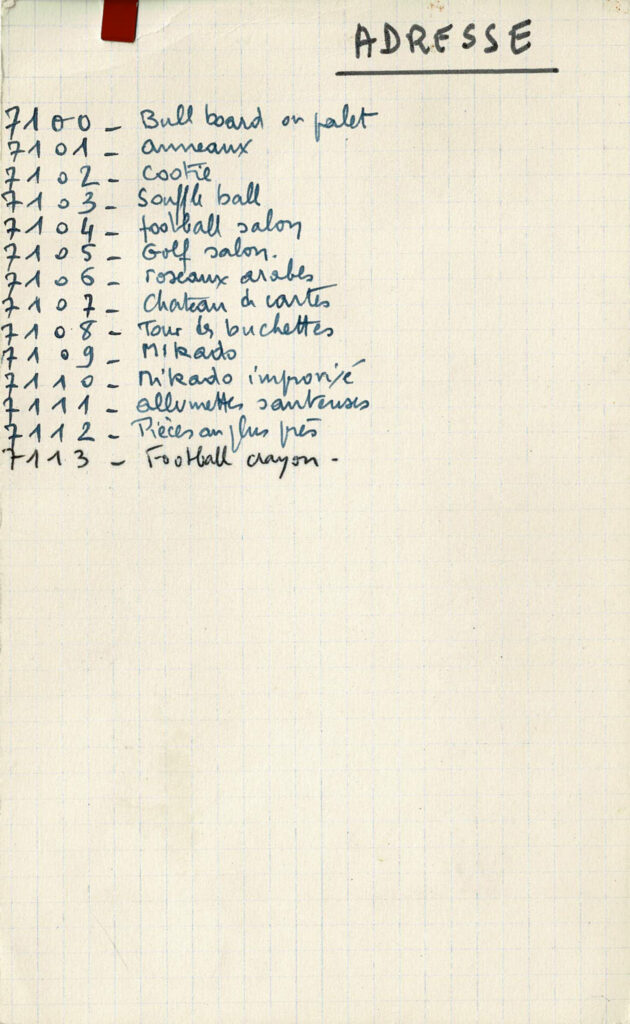 ADRESSE
7100 - Bull board ou palet
7101 - anneaux
7102 - Cookie
7103 - Souffle ball
7104 - football salon
7105 - Golf salon.
7106 - roseaux arabes
7107 - Chateau de cartes
7108 - Tour de buchettes
7109 - Mikado
7110 - Mikado improvisé
7111 - allumettes sauteuses
7112 - Pièces au plus près
7113 - Football crayon -